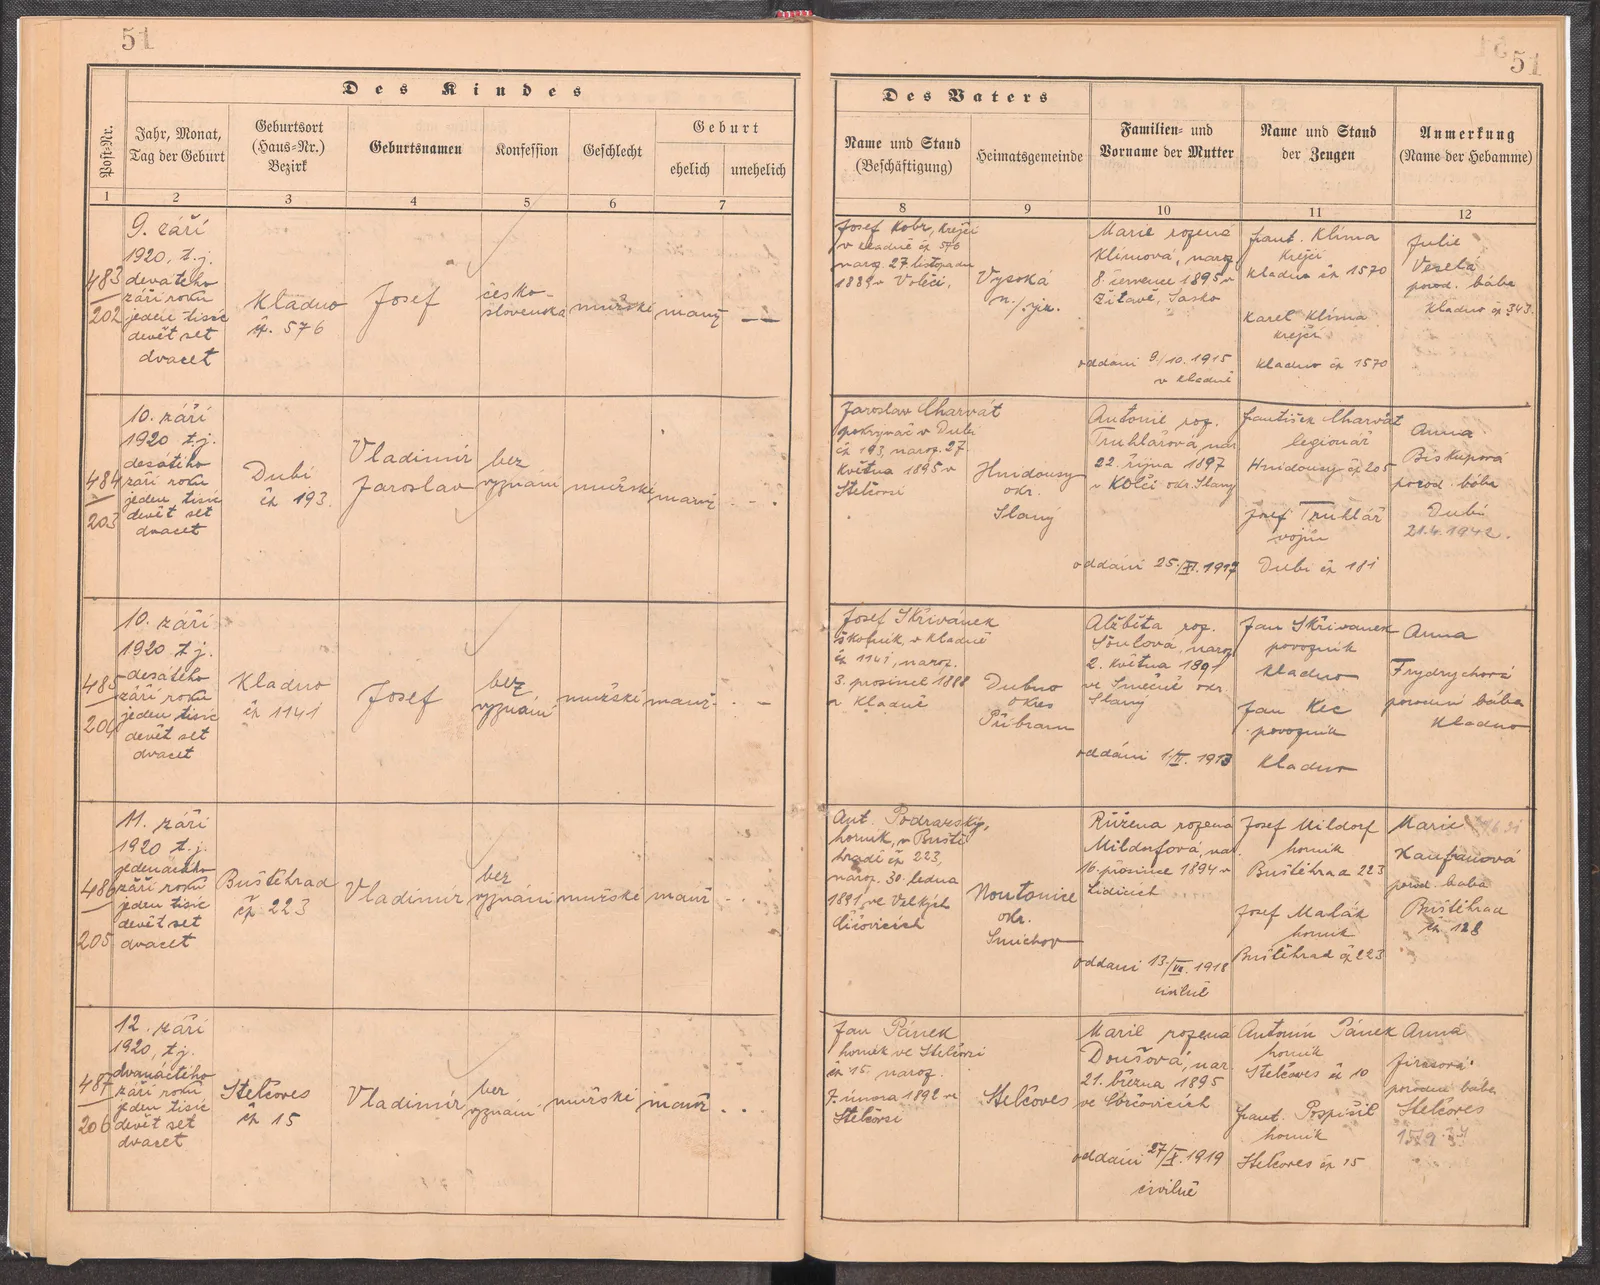 51
51
Des Kindes
Post-Nr.
Jahr, Monat,
Tag der Geburt
Geburtsort
(Haus-Nr.)
Bezirk
Geburtsnamen
Konfession
Geschlecht
Geburt
ehelich
unehelich
1
2
3
4
5
6
7
Des Vaters
Name und Stand
(Beschäftigung)
Heimatsgemeinde
Familien- und
Vorname der Mutter
Name und Stand
der Zeugen
Anmerkung
(Name der Hebamme)
8
9
10
11
12
483
202
9. září
1920, t.j.
devátého
září roku
jeden tisíc
devět set
dvacet
Kladno
čp. 576
Josef
česko-
slovenská
mužské
manž.
Josef Kobr, krejčí
v Kladně čp 576
naroz. 27. listopadu
1889 v Volči,
Vysoká
Marie rozená
Klímová, naroz.
8. července 1895 v
Žitavě, Sasko
oddáni 9/10. 1915
v Kladně
Frant. Klíma
krejčí
Kladno čp 1570
Karel Klíma
krejčí
Kladno čp 1570
Julie
Veselá
porod. bába
Kladno čp 343.
484
203
10. září
1920 t.j.
desátého
září roku
jeden tisíc
devět set
dvacet
Dubí
čp 193.
Vladimír
Jaroslav
bez
vyznání
mužské
manž.
Jaroslav Charvát
pokrývač v Dubí
čp 193, naroz. 27.
května 1895 v
Stelčovsi
Hnidousy
okr.
Slaný
Antonie roz.
Truhlářová, nar.
22. října 1897
v Kolči okr. Slaný
oddáni 25./XI. 1917
František Charvát
legionář
Hnidousy čp 205
Josef Truhlář
vojín
Dubí čp 181
Anna
Biskupová
porod. bába
Dubí
21.4.1942.
485
204
10. září
1920 t.j.
desátého
září roku
jeden tisíc
devět set
dvacet
Kladno
čp 1141
Josef
bez
vyznání
mužské
manž.
Josef Skřivánek
školník v Kladně
čp 1141, naroz.
3. prosince 1888
v Kladně
Dubno
okres
Příbram
Alžběta roz.
naroz.
2. května 1891
ve Smečně okr.
Slaný
oddáni 1/II. 1913
Jan Skřivánek
povozník
Kladno
Jan Kec
povozník
Kladno
Anna
Frydrychová
porodní bába
Kladno
486
205
11. září
1920 t.j.
jedenáctého
září roku
jeden tisíc
devět set
dvacet
Buštěhrad
čp 223
Vladimír
bez
vyznání
mužské
manž.
Ant. Podrazský,
horník, v Buště
hradě čp 223,
naroz. 30. ledna
1891, ve Velkých
Číčovicích
Noutonice
okr.
Smíchov
Růžena rozená
Mildorfová, nar.
16. prosince 1894 v
Lidicích
oddáni 13./VII. 1918
civilně
Josef Mildorf
horník
Buštěhrad 223
Josef Malák
horník
Buštěhrad čp 223
Marie
Kaufmanová
porod. bába
Buštěhrad
čp. 128
487
206
12. září
1920, t.j.
dvanáctého
září roku
jeden tisíc
devět set
dvacet
Stelčoves
čp 15
Vladimír
bez
vyznání
mužské
manž.
Jan Pánek
horník ve Stelčovsi
čp 15. naroz.
7. února 1892 ve
Stelčovsi
Stelčoves
Marie rozená
Doušová, nar.
21. března 1895
ve
oddáni 27/X. 1919
civilně
Antonín Pánek
horník
Stelčoves čp 10
Frant. Pospíšil
horník
Stelčoves čp 15
Anna
Jírasová
porodní bába
Stelčoves